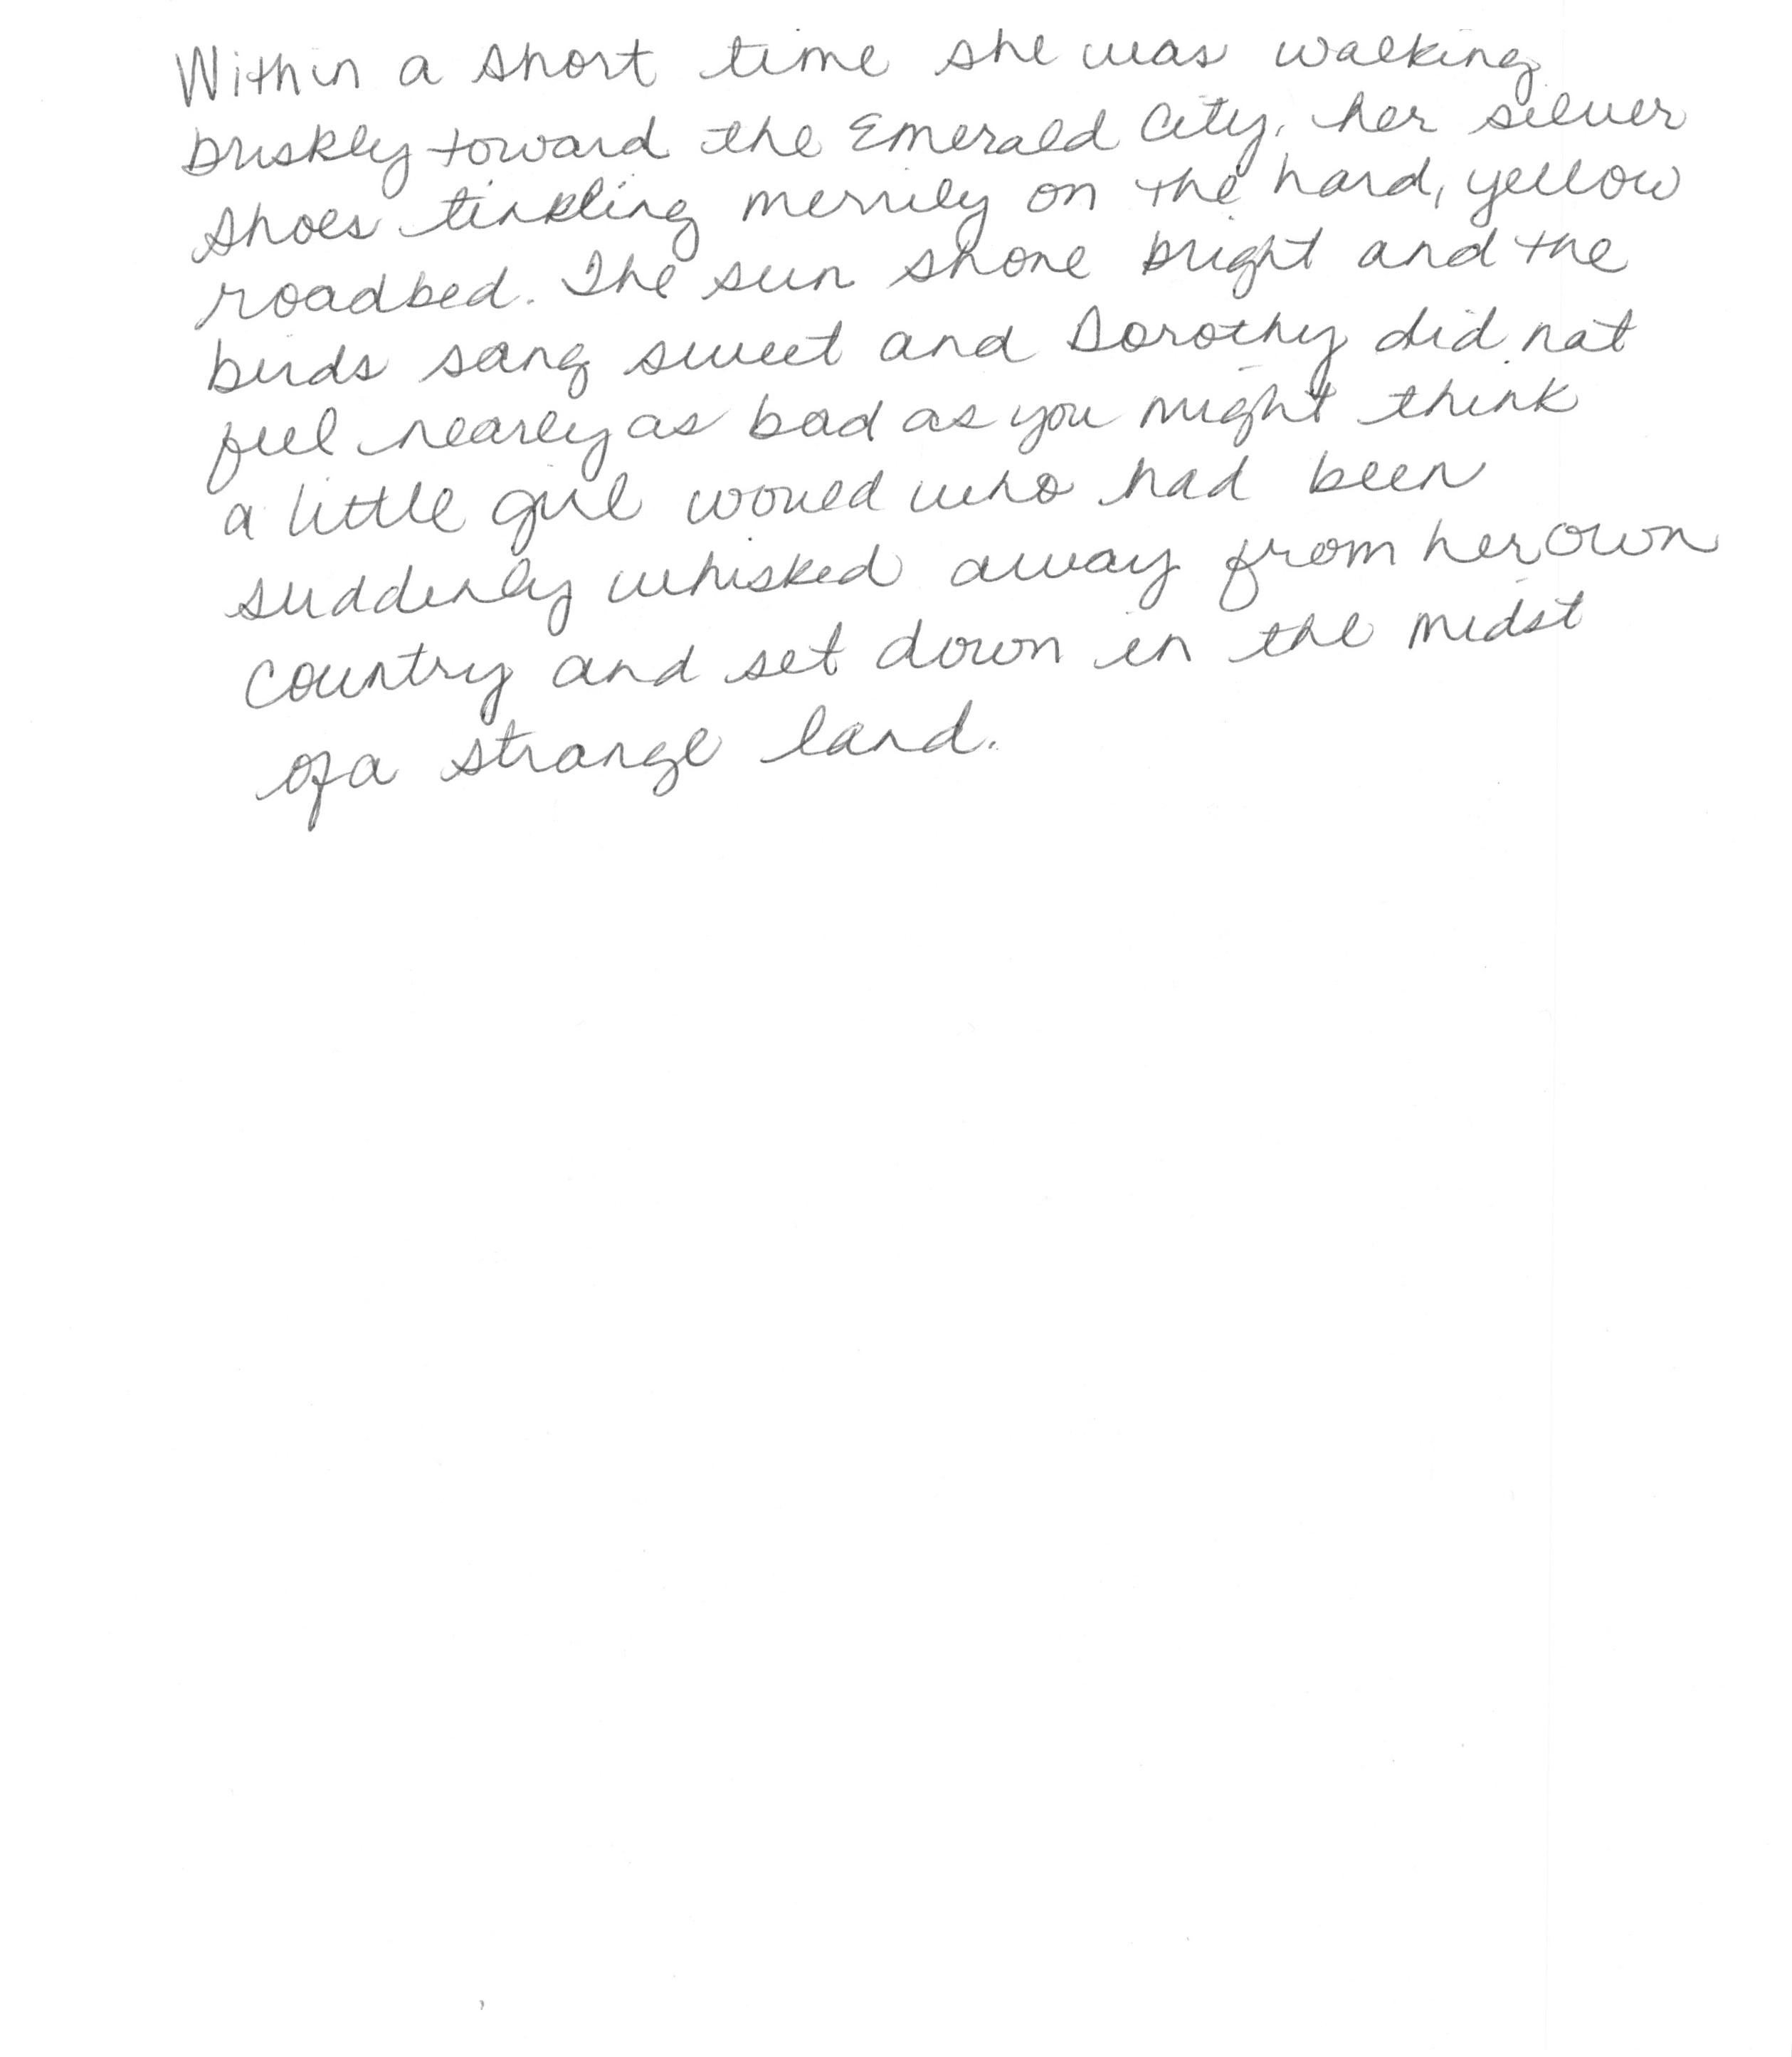 Within a short time she was walking
briskly toward the Emerald City, her silver
shoes tinkling merrily on the hard, yellow
roadbed. The sun shone bright and the
birds sang sweet and Dorothy did not
feel nearly as bad as you might think
a little girl would who had been
suddenly whisked away from her own
country and set down in the midst
of a strange land.